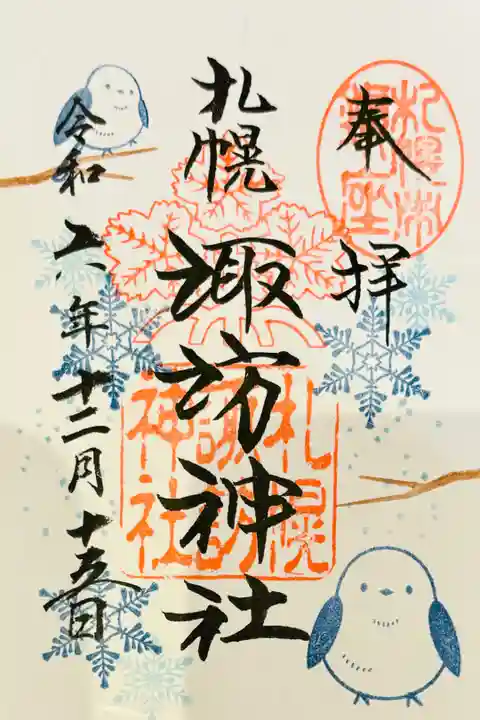 奉拝
札幌
諏訪神社
令和六年十二月十五日
札幌
諏訪
神社
札幌市